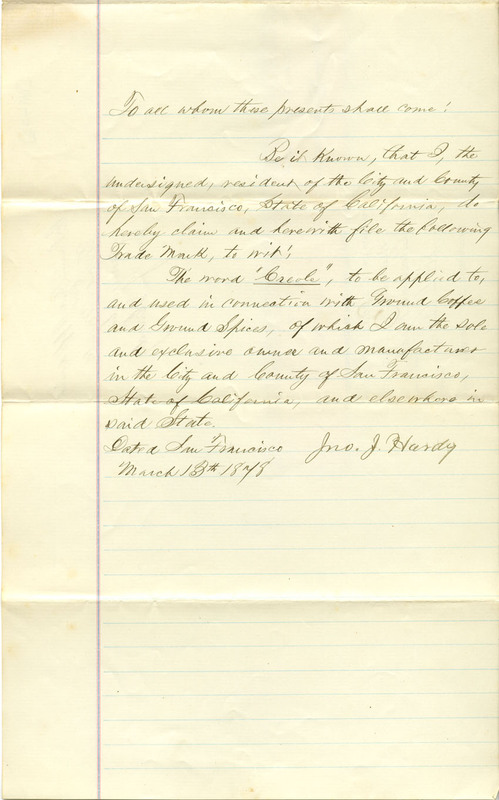 To all whom these presents shall come!
Be it Known, that I, the
undersigned, resident of the City and County
of San Francisco, State of California, do
hereby claim and herewith file the following
Trade Mark, to wit!
The word "Creole", to be applied to,
and used in connection with Ground Coffee
and Ground Spices, of which I am the sole
and exclusive owner and manufacturer
in the City and County of San Francisco,
State of California, and elsewhere in
said State.
Dated San Francisco Jno. J. Hardy
March 13th 1878